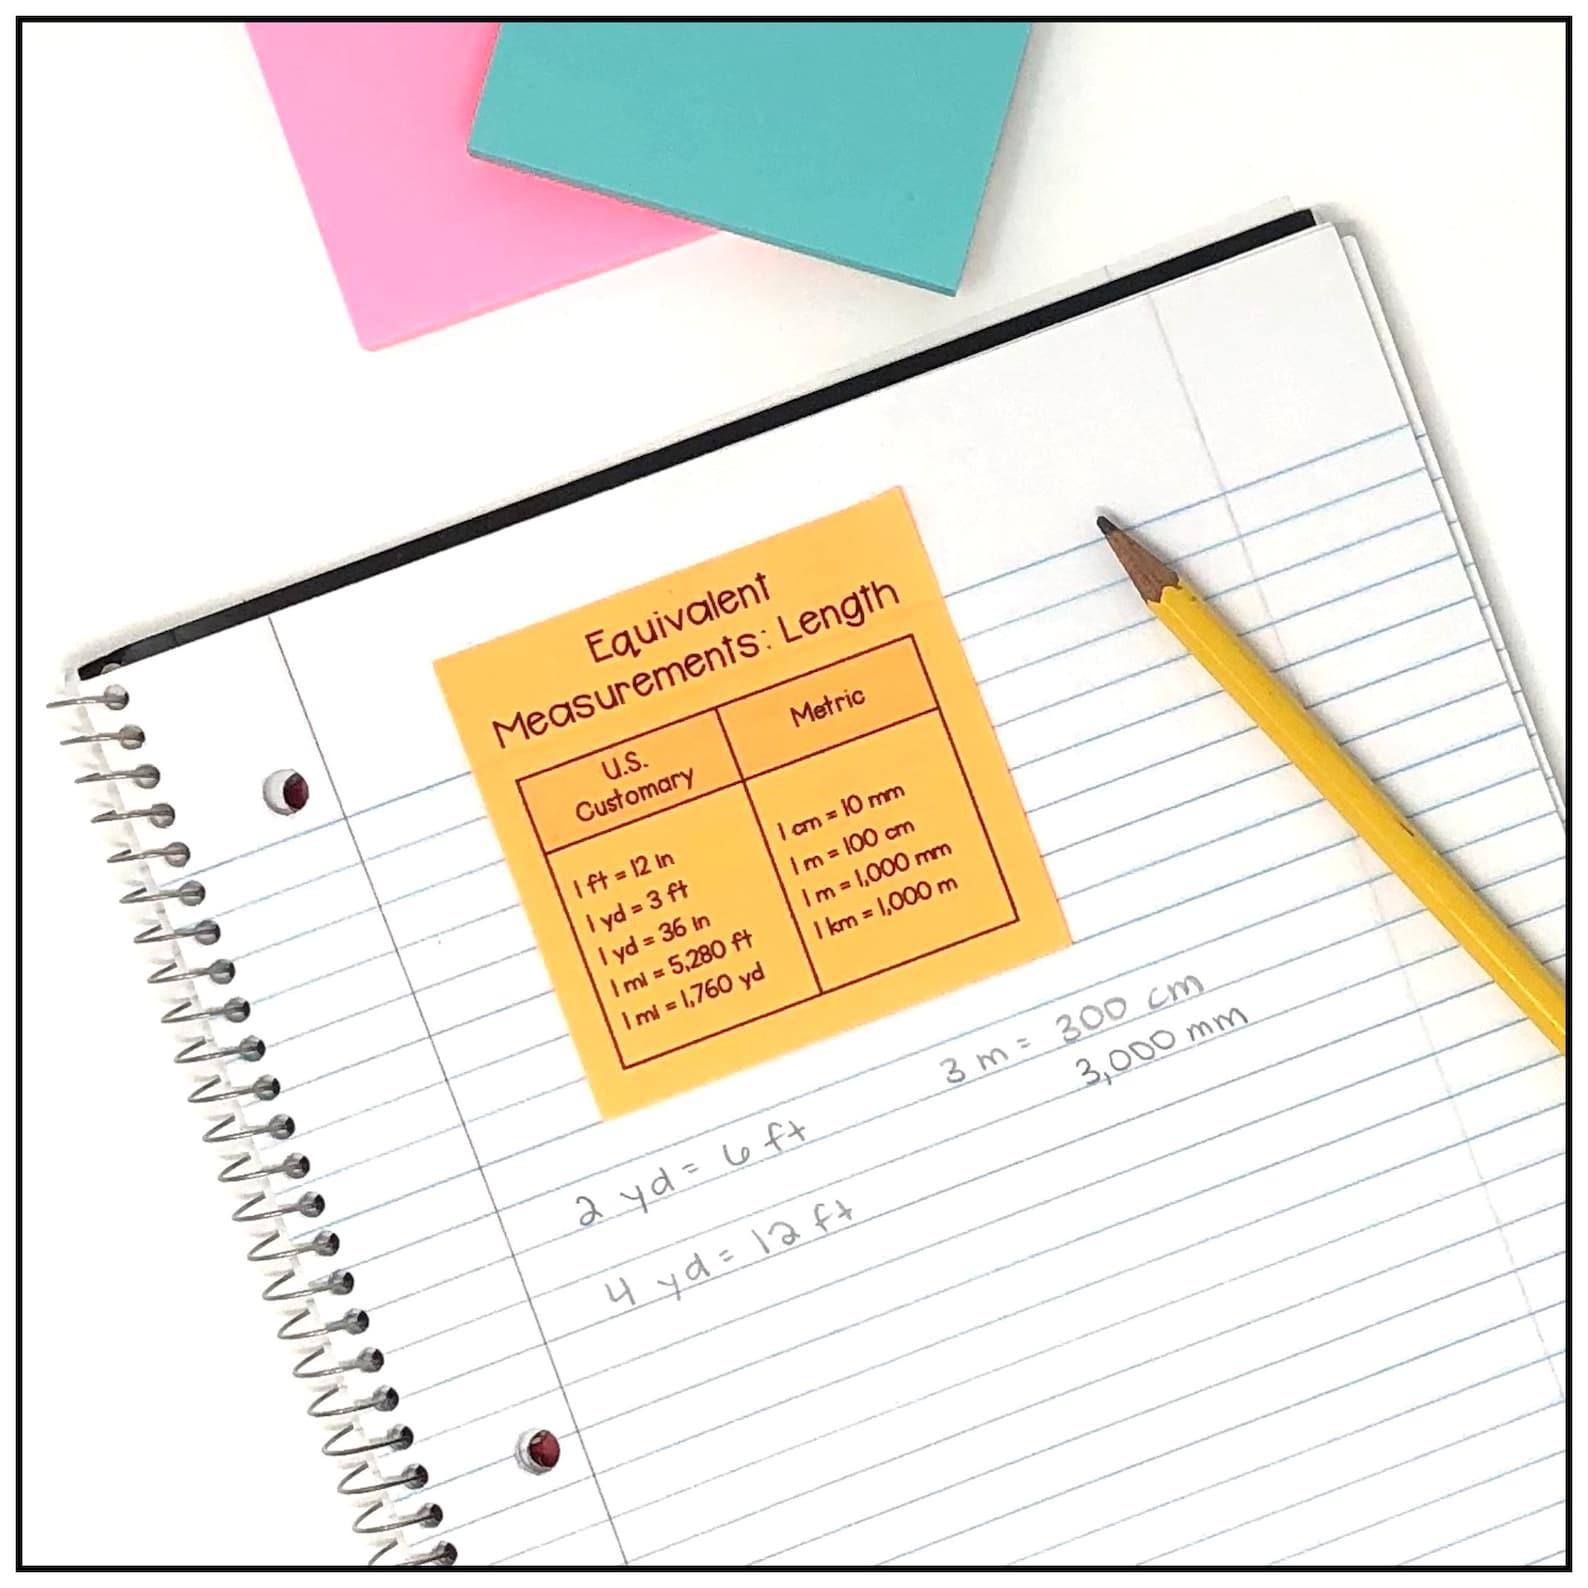 Equivalent
Measurements: Length
U.S.
Customary
Metric
1 ft = 12 in
1 yd = 3 ft
1 yd = 36 in
1 mi = 5,280 ft
1 mi = 1,760 yd
1 cm = 10 mm
1 m = 100 cm
1 m = 1,000 mm
1 km = 1,000 m
2 yd = 6 ft
4 yd = 12 ft
3 m = 300 cm
3,000 mm